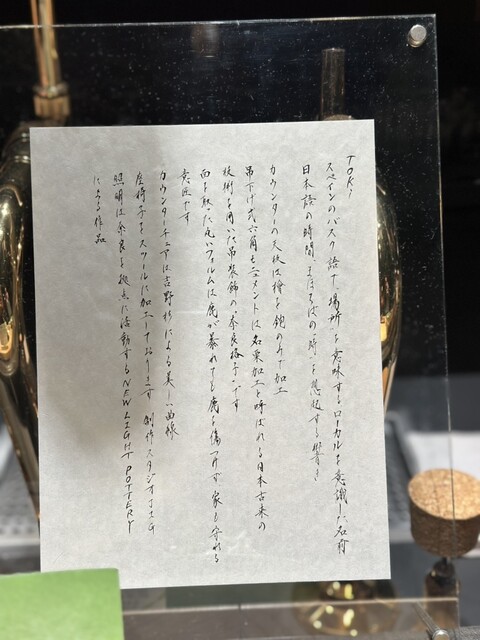 TOKi
スペインのバスク語で、場所を意味するローカルを意識した名前
日本語の時間、まほろばの時を想起する響き
カウンターの天板は檜を鉋のみで加工
吊下げ式六角モニュメントは名栗加工と呼ばれる日本古来の
技術を用いた吊装飾の“奈良格子”です
面を取った丸いフォルムは鹿が暴れても鹿を傷つけず家も守れる
意匠です
カウンターチェアは吉野杉による美しい曲線
座椅子をスツールに加工しております 創作スタジオ
照明は奈良を拠点に活動するNEW LIGHT POTTERY
による作品